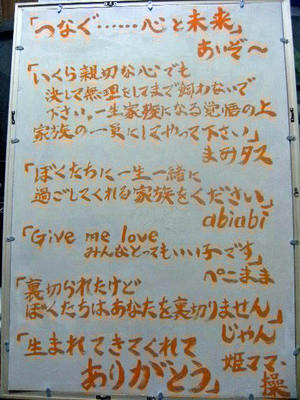 「つなぐ……心と未来」
あいぞ〜
「いくら親切な心でも
決して無理をしてまで飼わないで
下さい。一生家族になる覚悟の上
家族の一員にしてやって下さい」
まみタス
「ぼくたちに一生一緒に
過ごしてくれる家族をください」
abiabi
「Give me love
みんなとってもいい子です」
ぺこまま
「裏切られたけど
ぼくたちはあなたを裏切りません」
じゃん
「生まれてきてくれて
ありがとう」
姫ママ・操